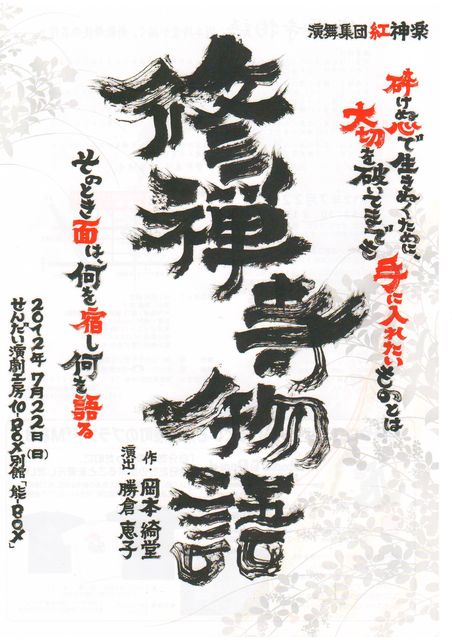 演舞集団紅神楽
砕けぬ心で生きぬくために、
大切を破いてまでも
手に入れたいものとは
修禅寺物語
作・岡本綺堂
演出・勝倉恵子
そのとき面は、何を宿し何を語る
2012年7月22日(日)
せんだい演劇工房10-BOX別館「能-BOX」